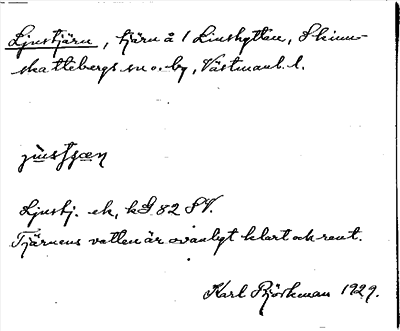 Ljustjärn, tjärn å 1 Linshyttan, Skinn-
skattebergs sn o. by, Västmanl. l.
Ljustj. ek, kbl 82 SV.
Tjärnens vatten är ovanligt klart och rent.
Karl Björkman 1929.